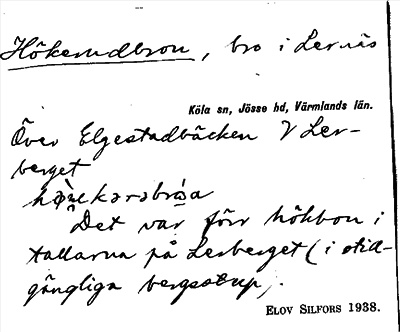 Hökerudbron, bro i Lernäs
Köla sn, Jösse hd, Värmlands län.
Över Elgestadbäcken V Ler-
berget
Det var förr hökbon i
tallarna på Lerberget (i otill-
gängliga bergsstup).
ELOV SILFORS 1938.